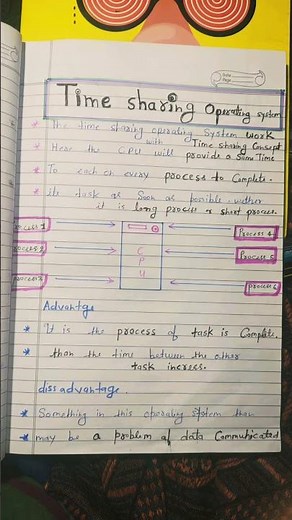 Date
Page
Time sharing Operating system
* The time sharing operating System work
with Time sharing Concept
* Hear the CPU will provide a Same Time
* To each ch every process to Complete.
* Its task as Soon as posible wether
it is long process & short process.
process 1
Process 4
process 2
C
P
U
Process 5
process 3
process 6
Advantge
* It is the process of task is Complete.
* than the time between the other
task increes.
dissadvantage.
* Something in this operating system than
* may be a problem of data Communicated